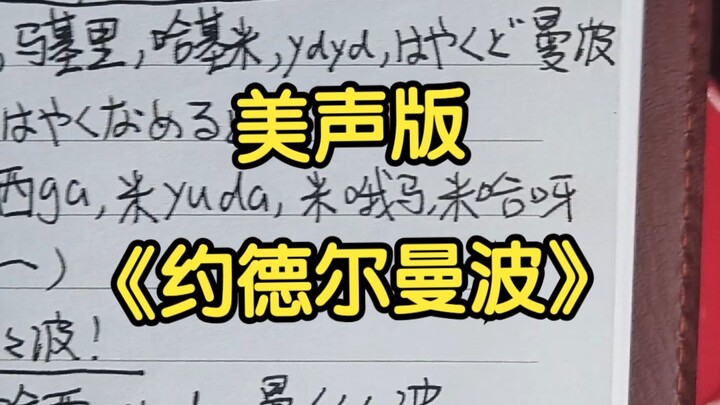 马基里,哈基米,ydyd,はやくど曼波
美声版
はやくなめる
西ga,米yuda,米哦马,米哈呀
《约德尔曼波》
一)
波!
曼
波